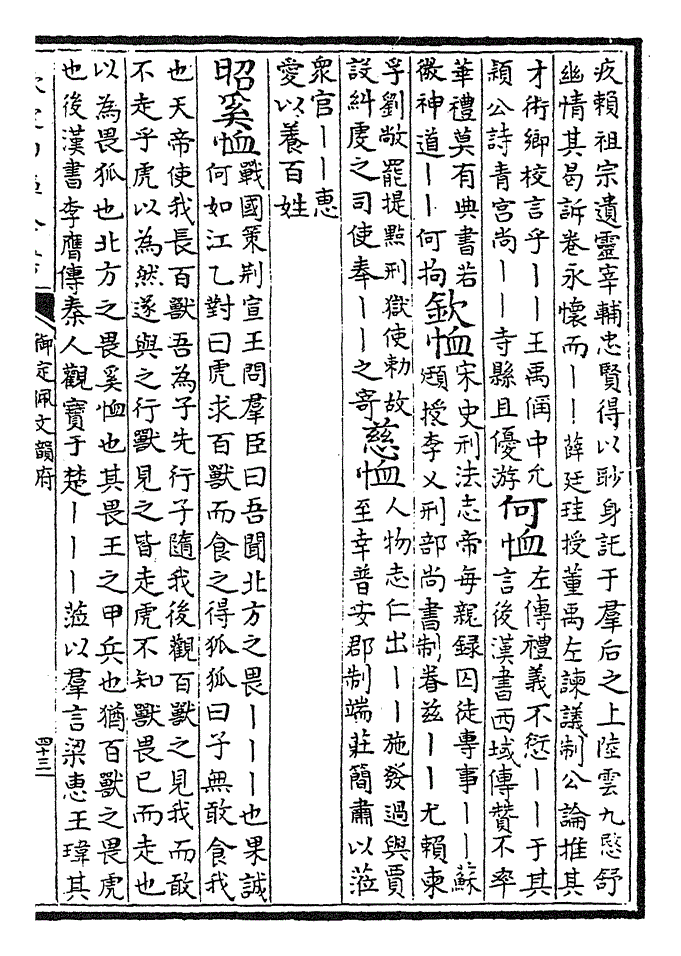 疚賴祖宗遺靈宰輔忠賢得以眇身託于羣后之上陸雲九愍舒
幽情其曷訴卷永懷而｜｜薛廷珪授董禹左諫議制公論推其
才術卿校言乎｜｜王禹偁中允
頴公詩青宮尚｜｜寺縣且優游
何恤
左傳禮義不愆｜｜于其
言後漢書西域傳贊不率
華禮莫有典書若
微神道｜｜何拘
欽恤
宋史刑法志帝每親録囚徒専事｜｜蘇
頲授李乂刑部尚書制眷茲｜｜尤賴柬
孚劉敞罷提點刑獄使勅故
設糾虔之司使奉｜｜之寄
慈恤
人物志仁出｜｜施發過與賈
至幸普安郡制端莊簡肅以蒞
衆官｜｜惠
愛以養百姓
昭奚恤
戰國策荆宣王問羣臣曰吾聞北方之畏｜｜｜也果誠
何如江乙對曰虎求百獸而食之得狐狐曰子無敢食我
也天帝使我長百獸吾為子先行子隨我後觀百獸之見我而敢
不走乎虎以為然遂與之行獸見之皆走虎不知獸畏已而走也
以為畏狐也北方之畏奚恤也其畏王之甲兵也猶百獸之畏虎
也後漢書李膺傳秦人觀寶于楚｜｜｜蒞以羣言梁惠王瑋其
御定佩文韻府
四十三